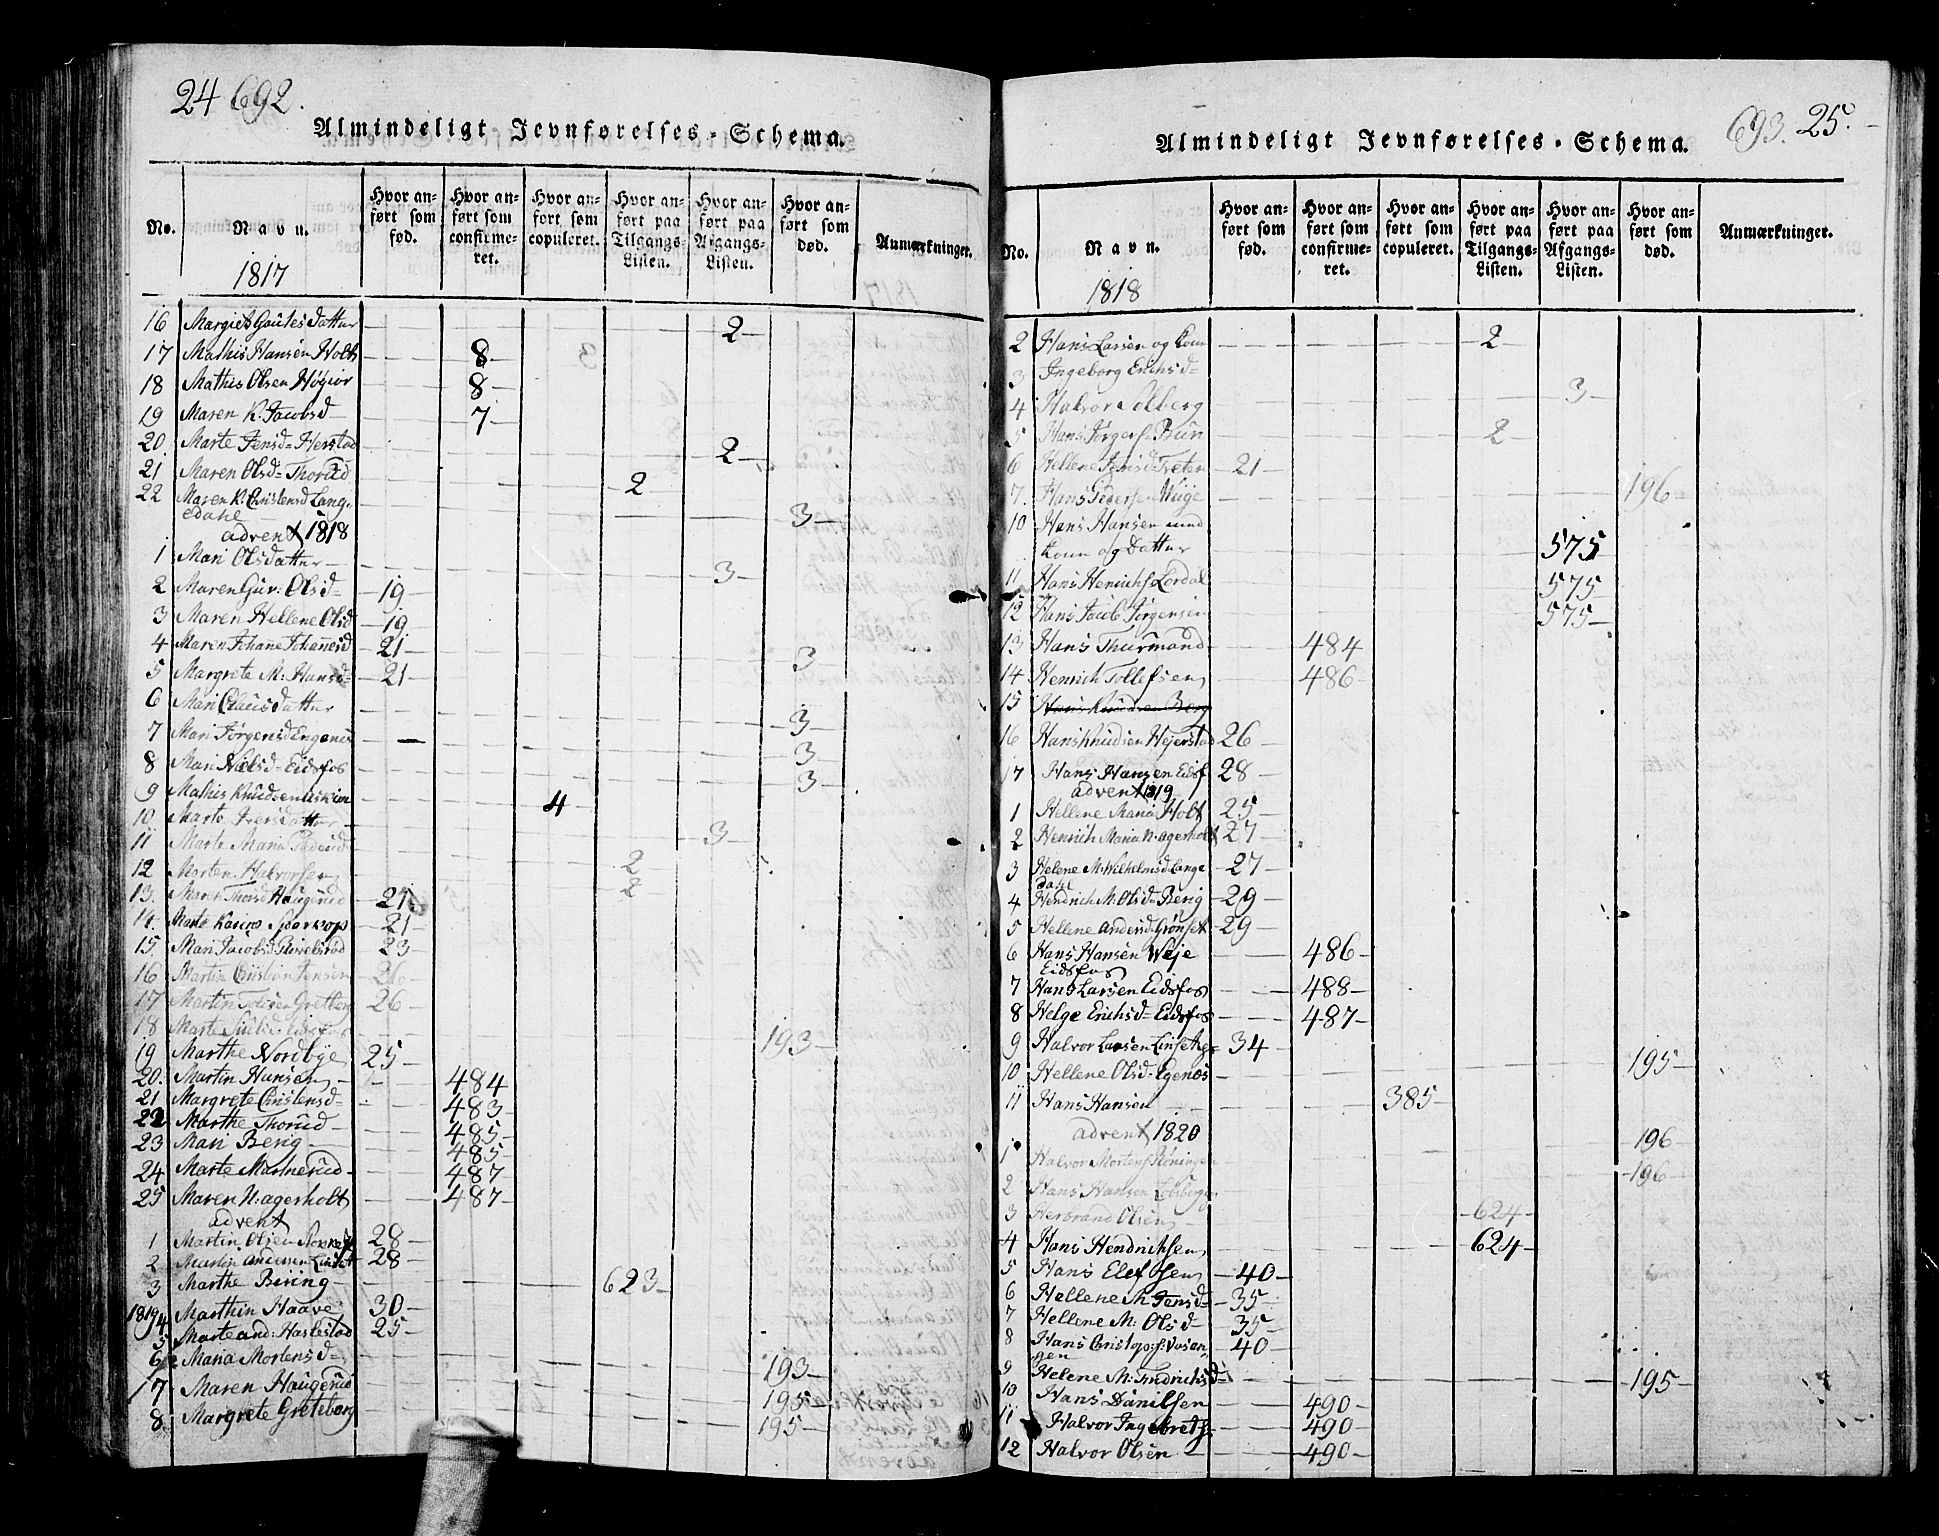 24 692.
Almindeligt Jevnførelses-Schema.
No.
Navn.
1817
Hvor anført som fød.
Hvor anført som confirmeret.
Hvor anført som copuleret.
Hvor anført paa Tilgangs-Listen.
Hvor anført paa Afgangs-Listen.
Hvor anført som død.
Anmærkninger.
16 Margiet Goutes datter 2
17 Mathis Hansen Holt 8
18 Mathis Olsen 8
19 Maren K. Jacobsd 7
20. Marte Jensd= Herstad 2
21 Maren Olsd= Thorud 2
22 Maren K. Christensd Lang=
edahl 3
advent 1818
1 Mari Olsdatter 3
2 Maren Gur: Olsd= 19
3 Maren Hellene Olsd 19
4 Maren Johane Johanesd 21
5 Margrete M: Hansd= 21
6 Mari Clausdatter 3
7 Mari Jørgensd Engenes 3
8 Mari Nielsd= Eidsfos 3
9 Mathis Knudsen 4
10. Marte Iversdatter 3
11 Marte Maria
12 Morten Halvorsen 2
13. Maren Thorsd Haugerud 21
14. Marte Karine 21
15. Mari Jacobsd 23
16 Martin Christian Jensen 26
17 Martin 26
18 Marte 193
19 Marthe Nordbye 25
20. Martin Hansen 484
21 Margrete Christensd= 483
22 Marthe Thorud 485
23 Mari Berig 485
24 Marte Martnerud 487
25 Maren N: agerholt 487
advent
1 Martin Olsen 28
2 Martin Andersen 28
3 Marthe Bering 623
1819 4 Marthin Haave 30
5 Marte and: Haslestad 25
6 Maria Mortensd= 193
7 Maren Haugerud 195
8 Margrete Greteborg 195
693. 25.
Almindeligt Jevnførelses-Schema.
No.
Navn.
1818
Hvor anført som fød.
Hvor anført som confirmeret.
Hvor anført som copuleret.
Hvor anført paa Tilgangs-Listen.
Hvor anført paa Afgangs-Listen.
Hvor anført som død.
Anmærkninger.
2 Hans Larsen og Kone 2
3 Ingeborg Erichsd=
4 Halvor Solberg 3
5 Hans Jørgens= 2
6 Hellene Jensd= 21
7. Hans Pedersen 196
10 Hans Hansen med
Kone og Datter 575
11 Hans Henrichs Lerdal 575
12 Hans Jacob Jørgensen 575
13 Hans Thurmand 484
14 Henrich Tollefsen 486
15 Hans Knudsen Berg
16 Hans Knudsen Hejerstad 26
17 Hans Hansen Eidsf 28
advent 1819
1 Hellene Maria Holt 25
2 Henrich Maria N: agerholt 27
3 Helene M: Wilhelmsd Lange
dahl 27
4 Hendrich M. Olsd= Berig 29
5 Hellene Andersd Grønset 29
6 Hans Hansen Weje
Eidsfos 486
7 Hans Larsen Eidsfos 488
8 Helge Erichsd= Eidsfos 487
9 Halvor Larsen 34
10. Hellene Olsd= Egenes 195
11 Hans Hansen 385
advent 1820
1 Halvor Mortens 196
2 Hans Hansen 196
3 Herbrand Olsen 624
4 Hans Hendrichsen 624
5 Hans Elefsen 40
6 Hellene M. Jensd= 35
7 Hellene M: Olsd 35
8 Hans Christoph: 40
9 Helene M: Fredrichsd= 195
10 Hans Danilsen 490
11 Halvor Ingebrets= 490
12 Halvor Olsen 490